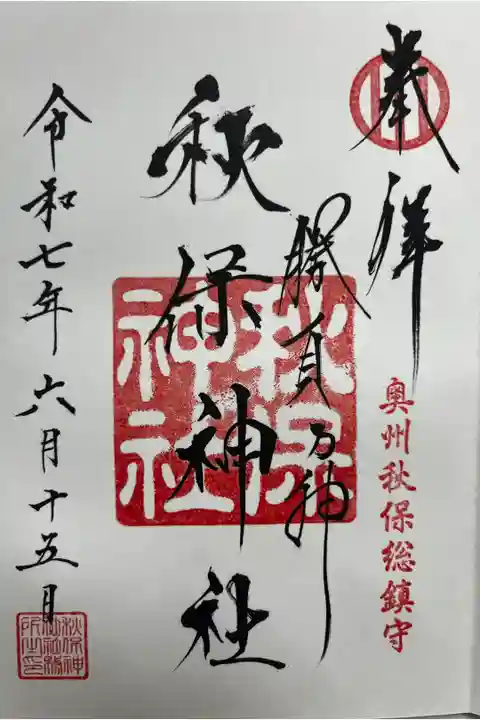 奉拝
奥州秋保総鎮守
勝負の神
秋保神社
秋保神社
令和七年六月十五日
秋保神社社務所之印